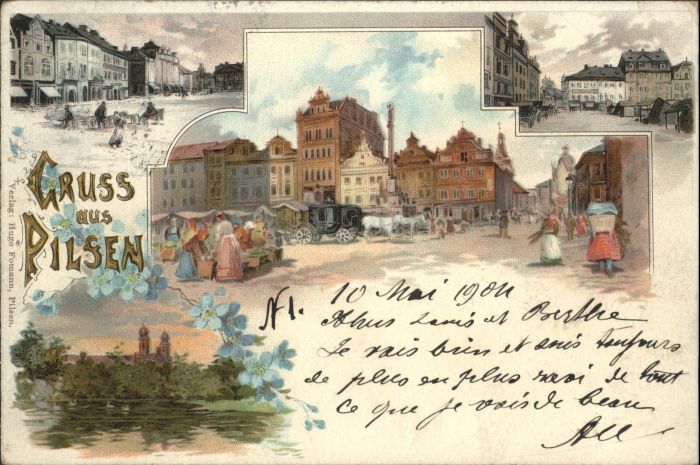 GRUSS
aus
PILSEN
Verlag: Hugo Fomann, Pilsen.
N 1.
10 Mai 1901
Louis et Berthe
Je vais bien et suis toujours
de plus en plus ravi de tout
ce que je vois de beau